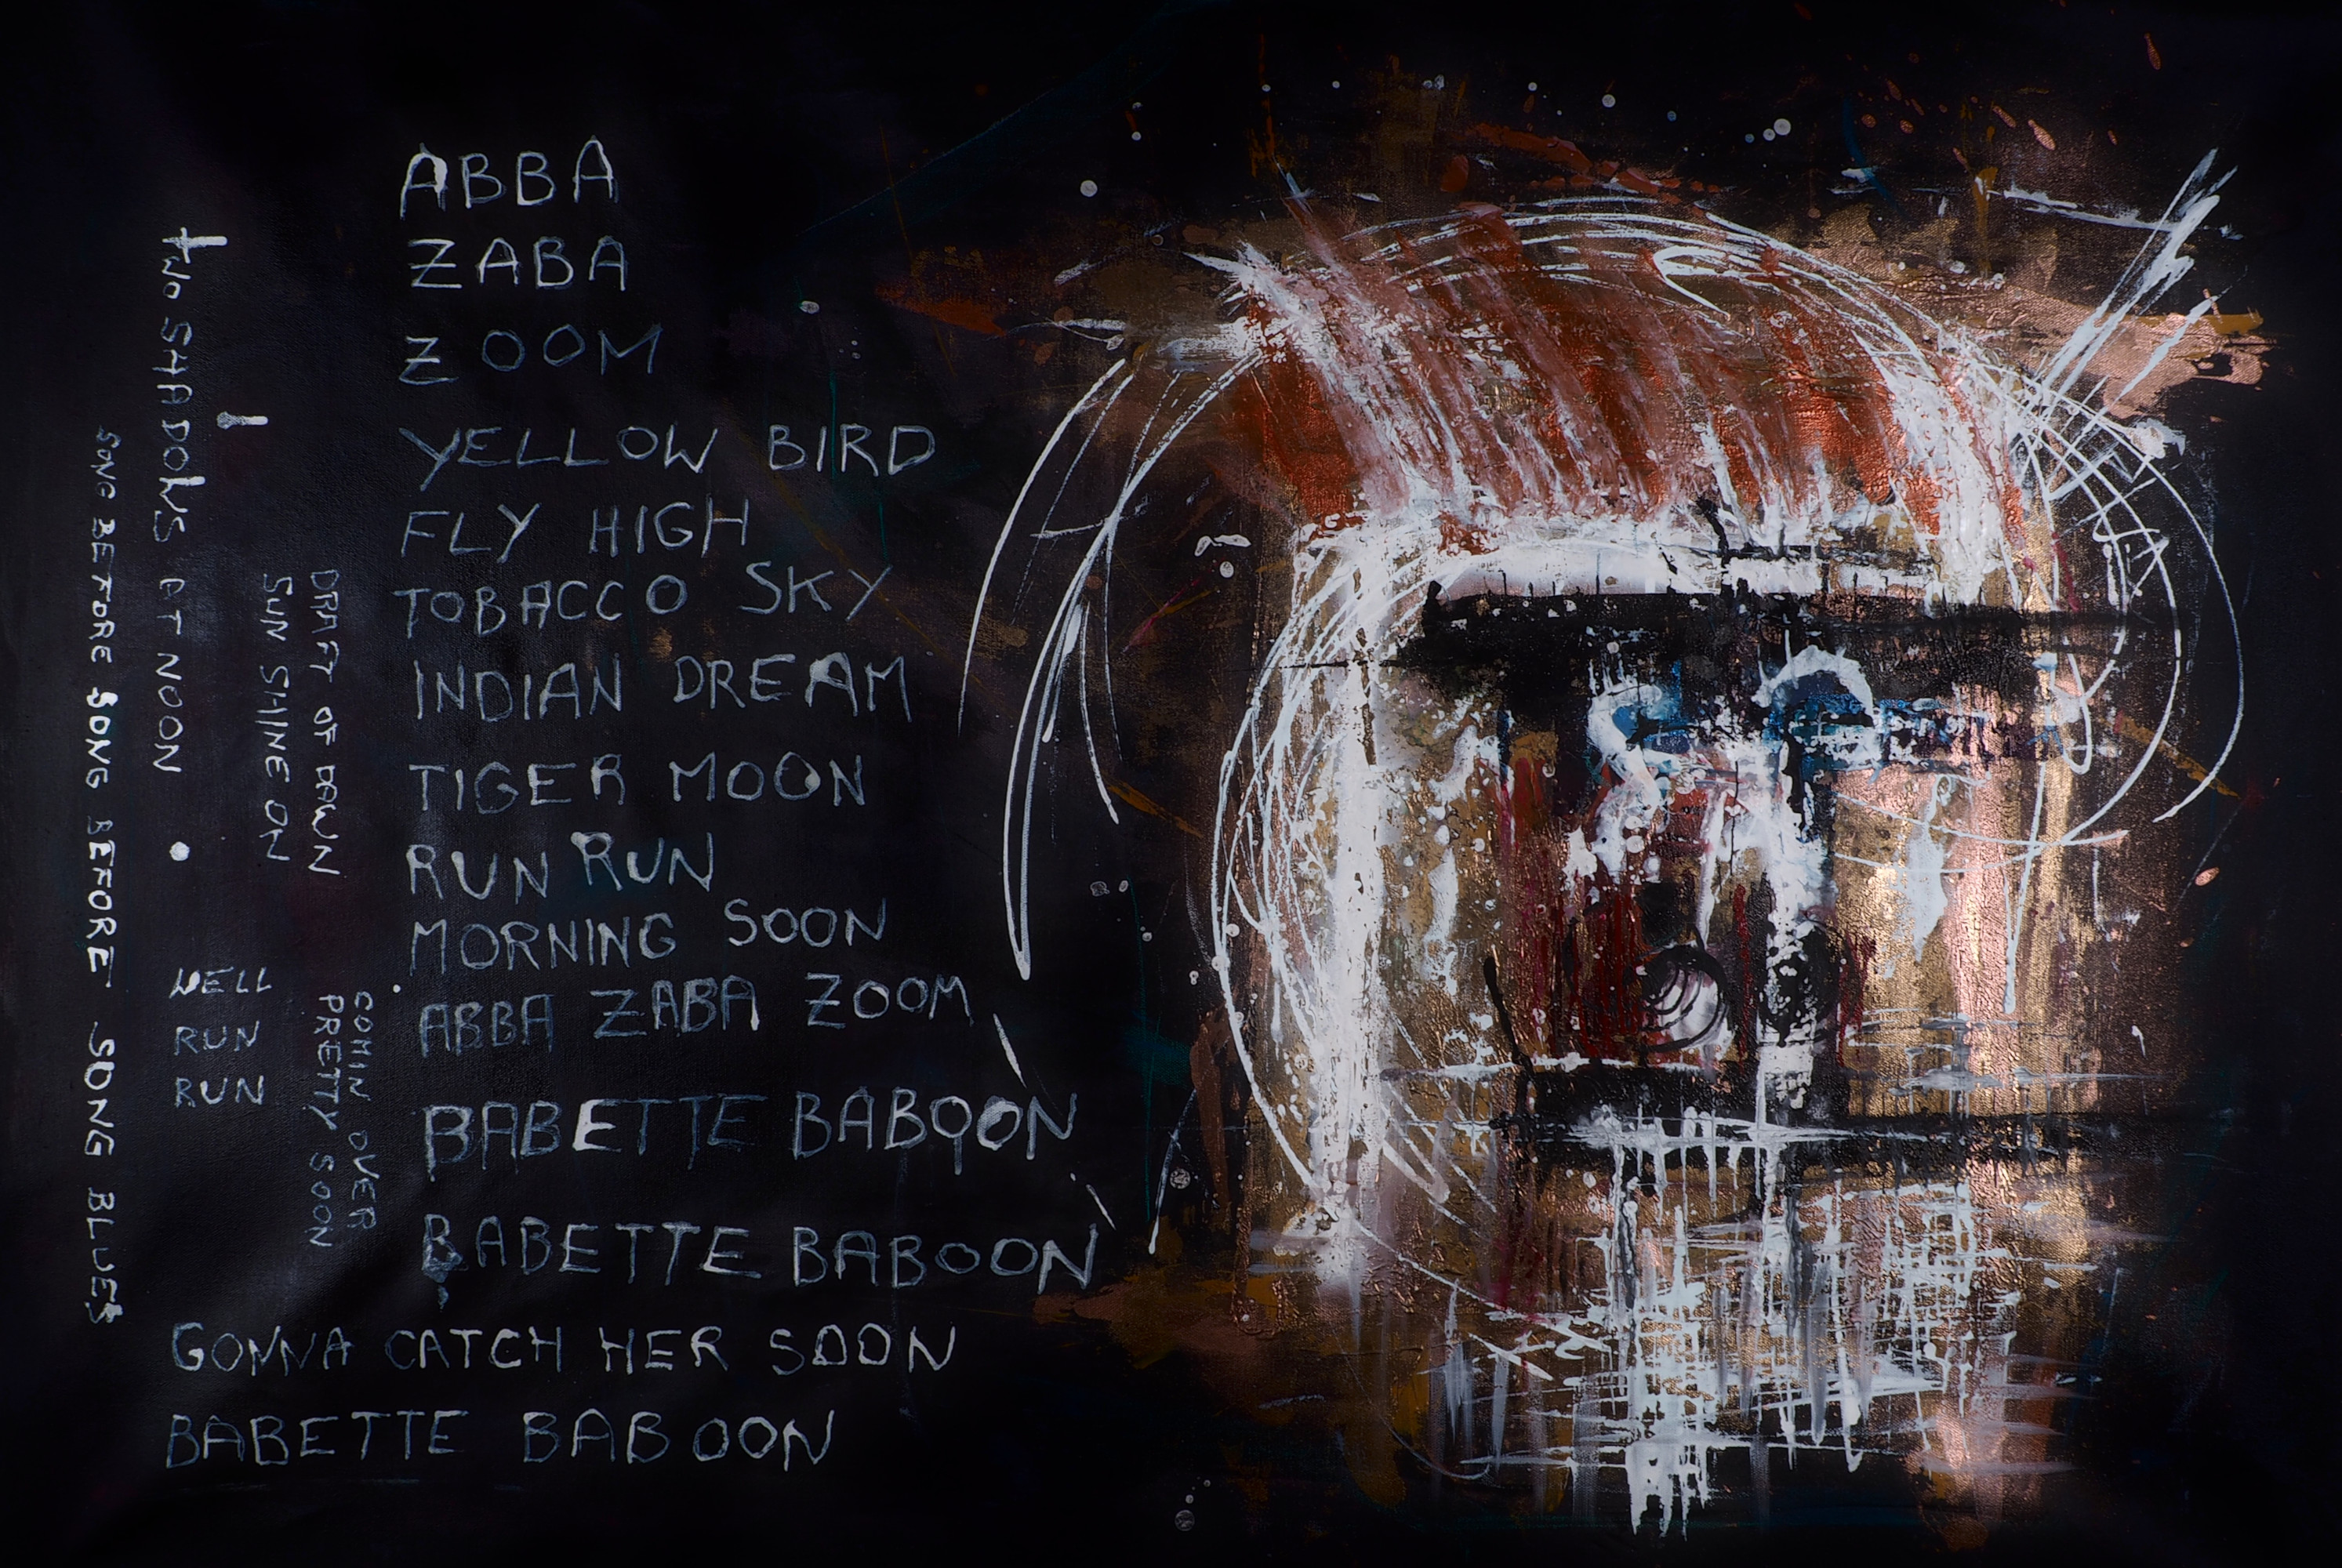 ABBA
ZABA
ZOOM
YELLOW BIRD
FLY HIGH
TOBACCO SKY
INDIAN DREAM
TIGER MOON
RUN RUN
MORNING SOON
ABBA ZABA ZOOM
BABETTE BABOON
BABETTE BABOON
GONNA CATCH HER SOON
BABETTE BABOON
two SHADOWS AT NOON
SONG BEFORE SONG BEFORE SONG BLUES
DRAFT OF DAWN
SUN SHINE ON
WELL
RUN
RUN
COMIN OVER
PRETTY SOON